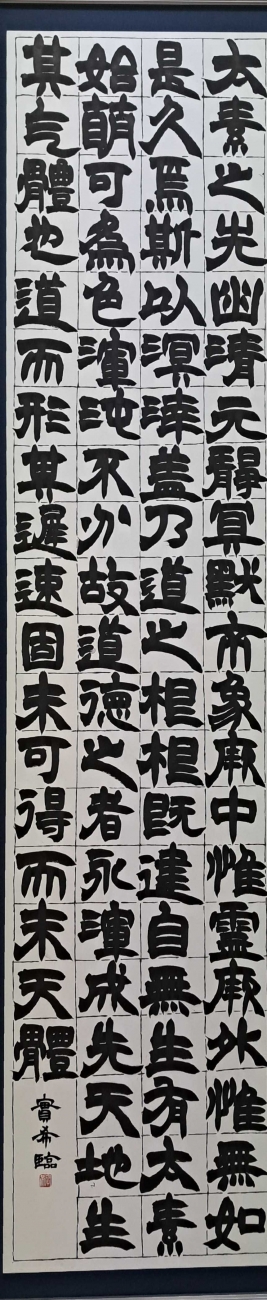 太素之先幽清元靜冥默市象厥中惟靈厥外惟無如
是久焉斯以溟涬蓋乃道之根根既建自無生有太素
始萌可為色渾沌不分故道德之者永渾成先天地生
其气體也道而形其遲速固未可得而未天體
實希臨